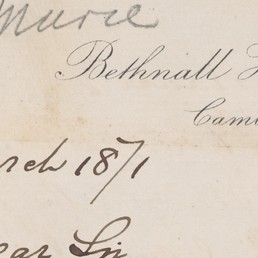 Murie
Bethnall
Cam
rch 1871
ear Sir